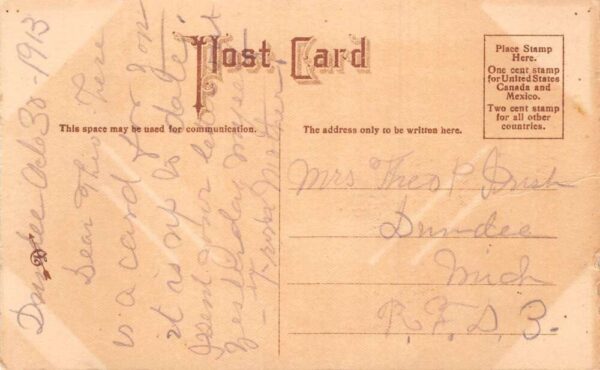 Post Card
Place Stamp
Here.
One cent stamp
for United States
Canada and
Mexico.
Two cent stamp
for all other
countries.
This space may be used for communication.
The address only to be written here.
Dundee Oct 30 - 1913
Dear Theo Here
is a card for you
it as up to date
I sent your
yesterday
- from Mother
Mrs Theo P. Irish
Dundee
Mich
R.F.D. 3.